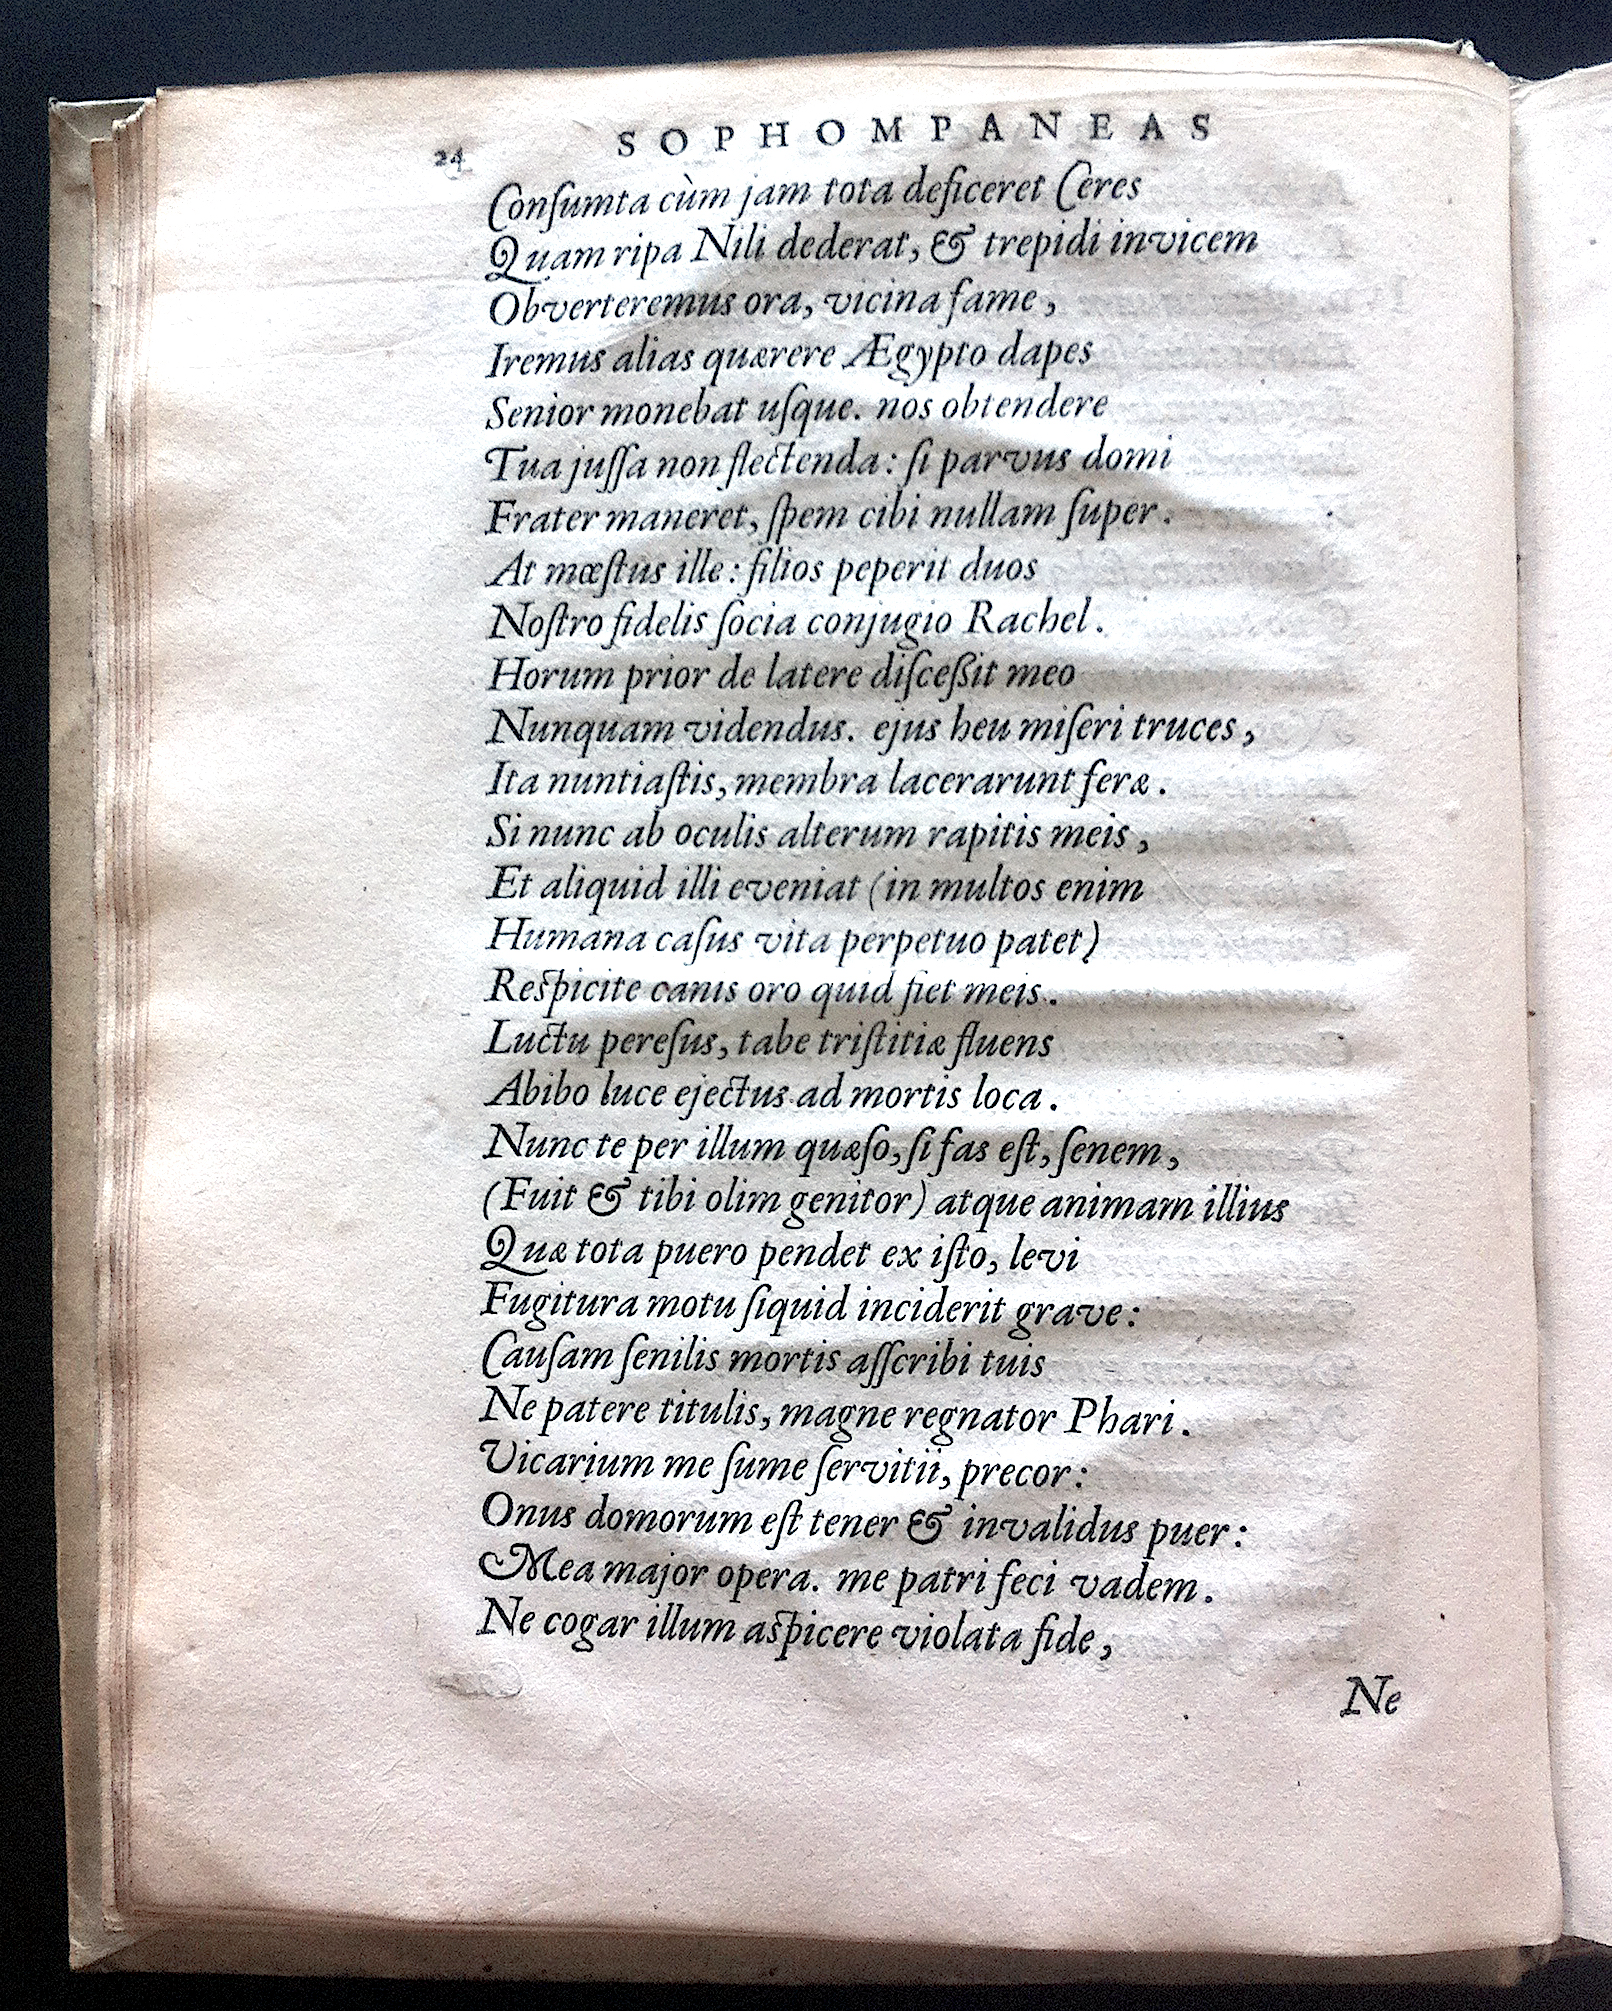 24 SOPHOMPANEAS
Conſumta cùm jam tota deficeret Ceres
Quam ripa Nili dederat, & trepidi invicem
Obverteremus ora, vicina fame,
Iremus alias quærere Ægypto dapes
Senior monebat uſque. nos obtendere
Tua juſſa non flectenda: ſi parvus domi
Frater maneret, ſpem cibi nullam ſuper.
At mœſtus ille: filios peperit duos
Noſtro fidelis ſocia conjugio Rachel.
Horum prior de latere diſceßit meo
Nunquam videndus. ejus heu miſeri truces,
Ita nuntiaſtis, membra lacerarunt feræ.
Si nunc ab oculis alterum rapitis meis,
Et aliquid illi eveniat (in multos enim
Humana caſus vita perpetuo patet)
Reſpicite canis oro quid fiet meis.
Luctu pereſus, tabe triſtitiæ fluens
Abibo luce ejectus ad mortis loca.
Nunc te per illum quæſo, ſi fas eſt, ſenem,
(Fuit & tibi olim genitor) atque animam illius
Quæ tota puero pendet ex iſto, levi
Fugitura motu ſiquid inciderit grave:
Cauſam ſenilis mortis aſſcribi tuis
Ne patere titulis, magne regnator Phari.
Vicarium me ſume ſervitii, precor:
Onus domorum eſt tener & invalidus puer:
Mea major opera. me patri feci vadem.
Ne cogar illum aſpicere violata fide,
Ne